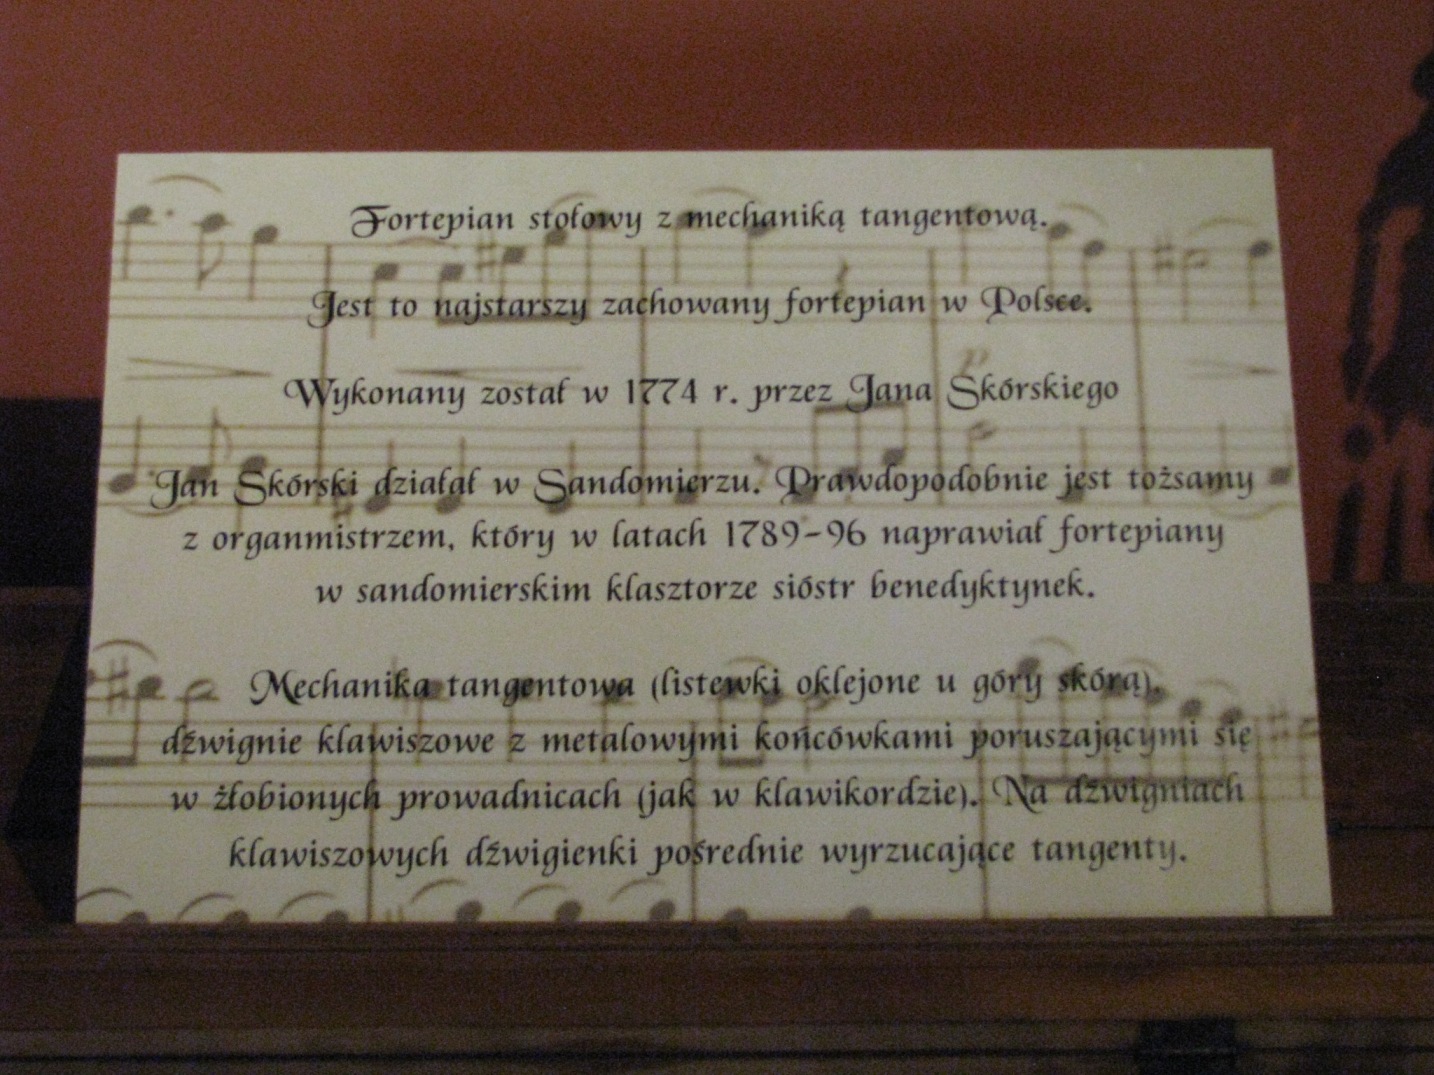 Fortepian stołowy z mechaniką tangentową.
Jest to najstarszy zachowany fortepian w Polsce.
Wykonany został w 1774 r. przez Jana Skórskiego
Jan Skórski działał w Sandomierzu. Prawdopodobnie jest tożsamy
z organmistrzem, który w latach 1789-96 naprawiał fortepiany
w sandomierskim klasztorze sióstr benedyktynek.
Mechanika tangentowa (listewki oklejone u góry skórą),
dźwignie klawiszowe z metalowymi końcówkami poruszającymi się
w żłobionych prowadnicach (jak w klawikordzie). Na dźwigniach
klawiszowych dźwigienki pośrednie wyrzucające tangenty.